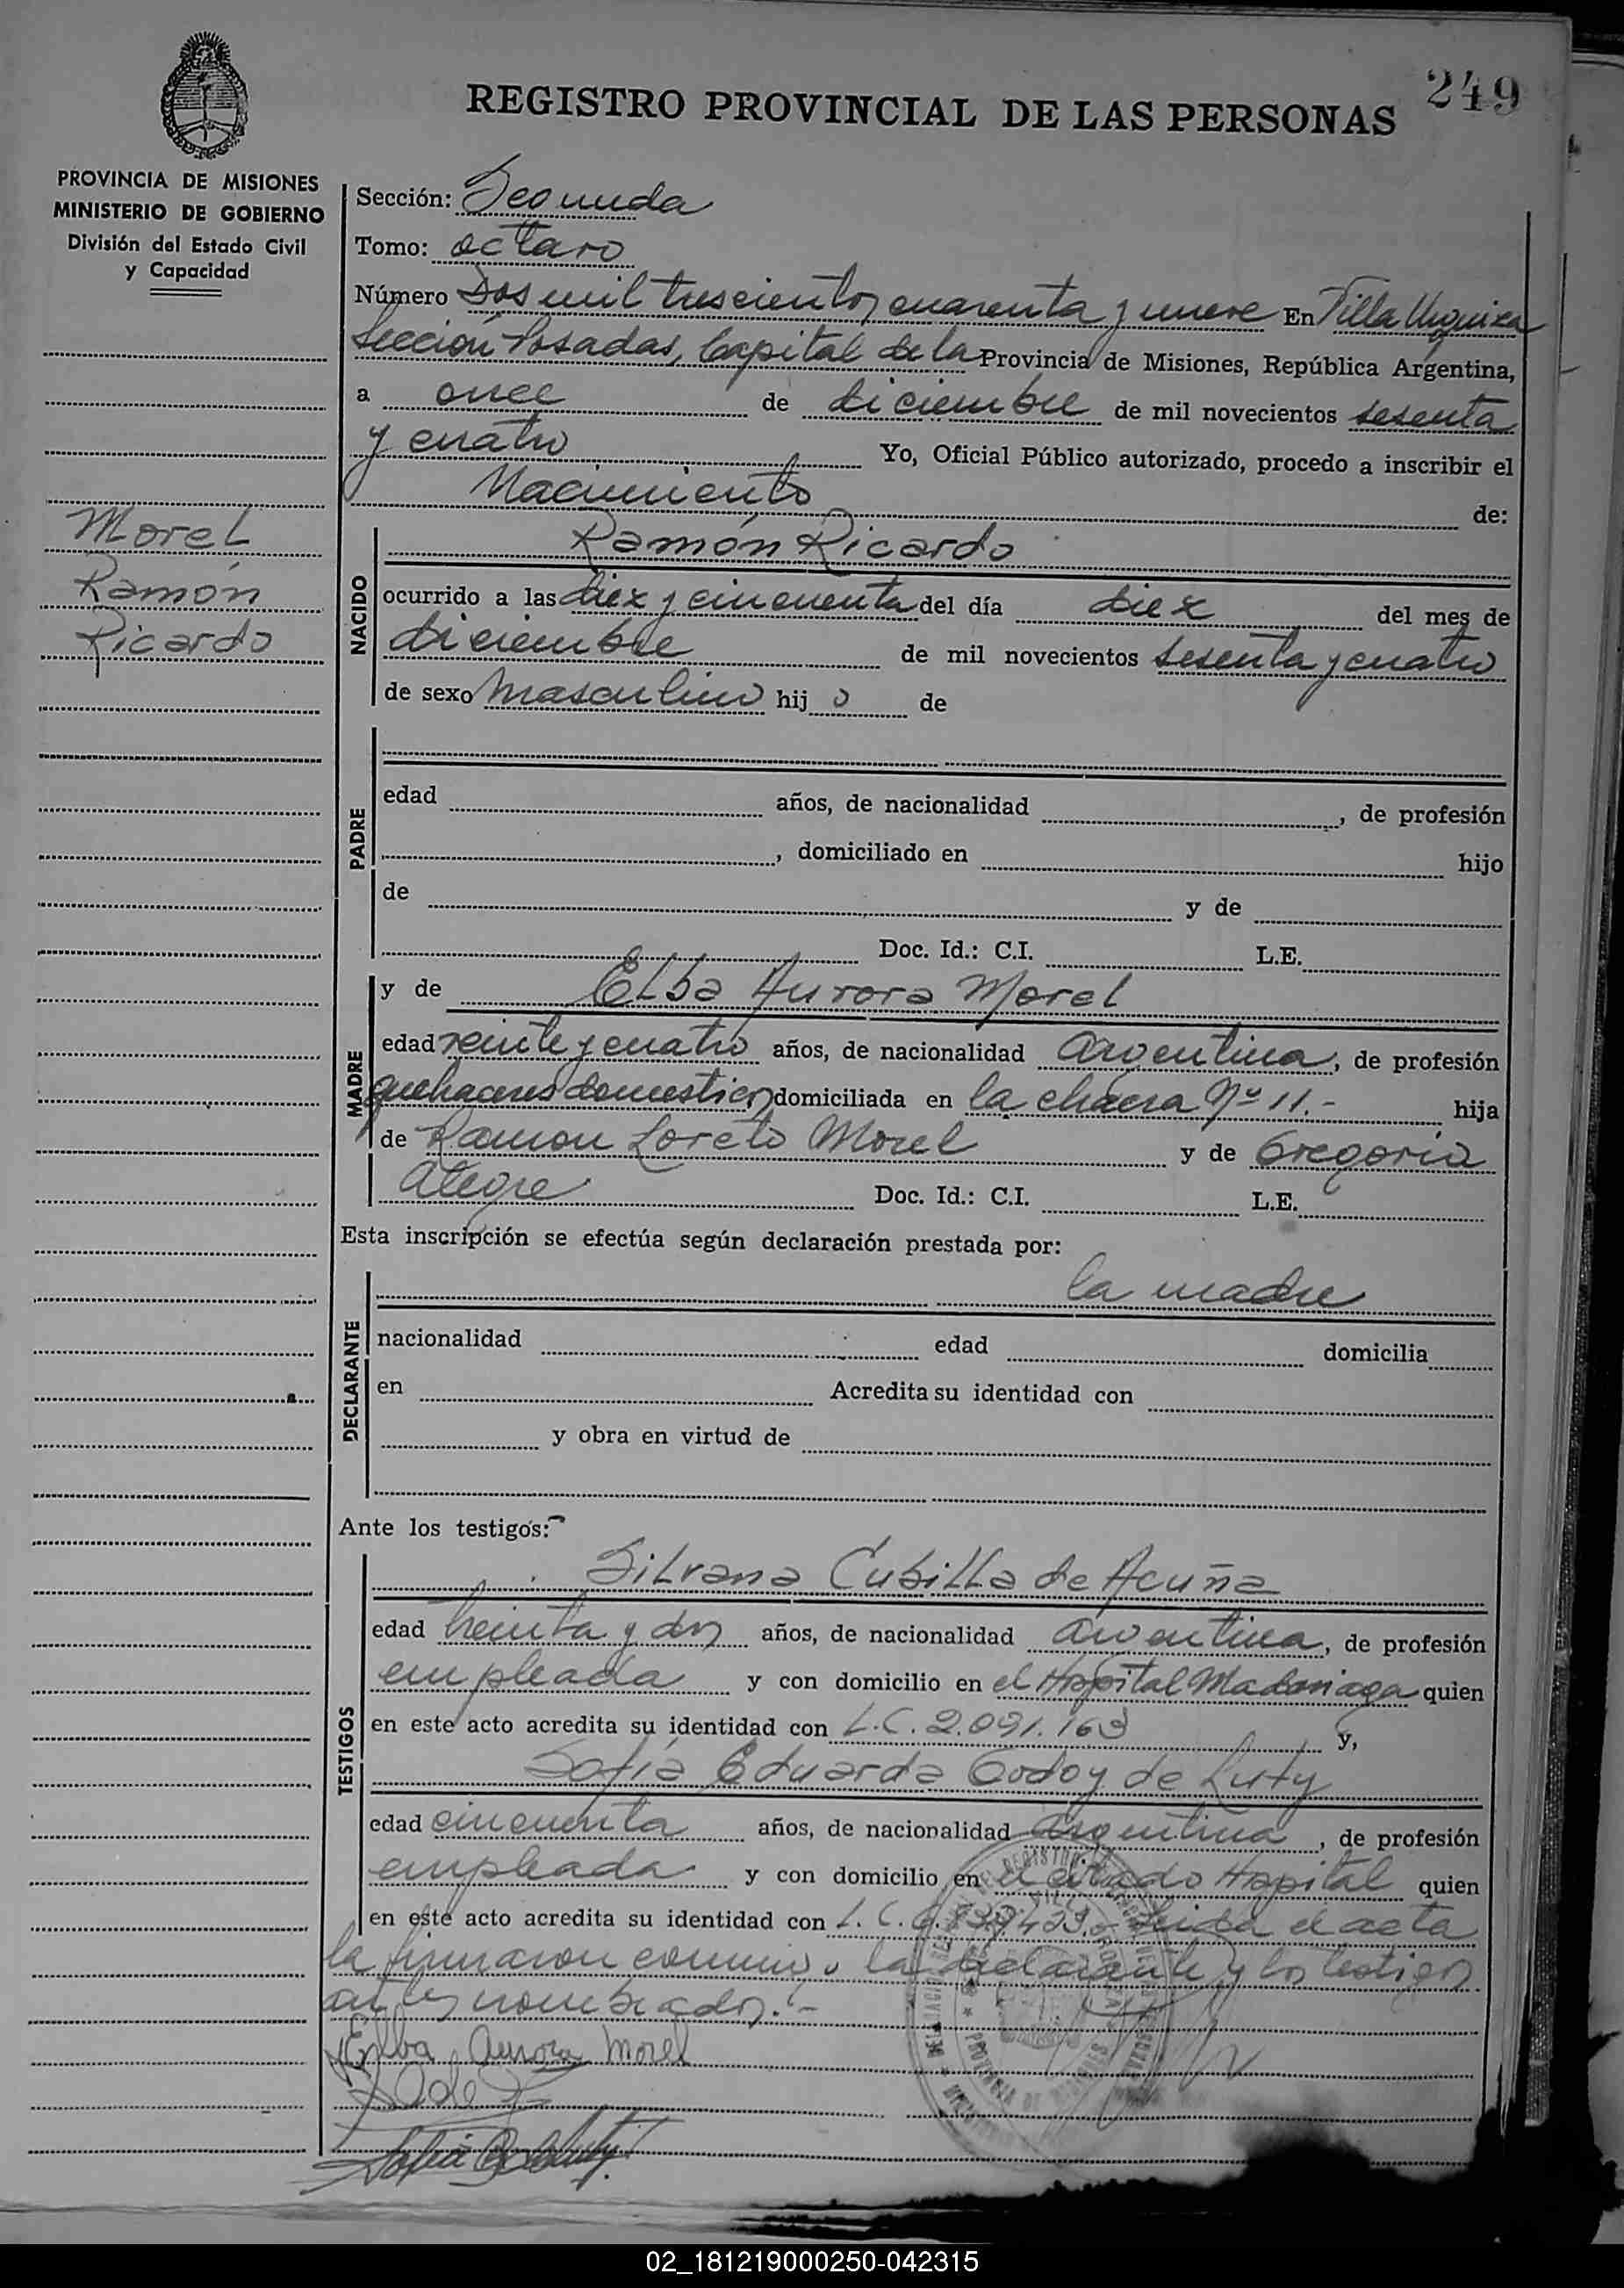 249
REGISTRO PROVINCIAL DE LAS PERSONAS
PROVINCIA DE MISIONES
MINISTERIO DE GOBIERNO
División del Estado Civil
y Capacidad
Morel
Ramón
Ricardo
Sección: Segunda
Tomo: octavo
Número Dos mil trescientos cuarenta y nueve En Villa Urquiza
Sección Posadas, Capital de la Provincia de Misiones, República Argentina,
a once de diciembre de mil novecientos sesenta
y cuatro Yo, Oficial Público autorizado, procedo a inscribir el
Nacimiento de:
NACIDO
Ramón Ricardo
ocurrido a las diez y cincuenta del día diez del mes de
diciembre de mil novecientos sesenta y cuatro
de sexo masculino hij o de
PADRE
edad años, de nacionalidad , de profesión
, domiciliado en hijo
de y de
Doc. Id.: C.I. L.E.
MADRE
y de Elba Aurora Morel
edad veinte y cuatro años, de nacionalidad argentina, de profesión
quehaceres domesticos domiciliada en la chacra Nº 11.- hija
de Ramon Loreto Morel y de Gregoria
Alegre Doc. Id.: C.I. L.E.
Esta inscripción se efectúa según declaración prestada por:
DECLARANTE
la madre
nacionalidad edad domicilia
en Acredita su identidad con
y obra en virtud de
Ante los testigos:
TESTIGOS
Silvana Cubilla de Acuña
edad treinta y dos años, de nacionalidad argentina, de profesión
empleada y con domicilio en el Hospital Madariaga quien
en este acto acredita su identidad con L.C. 2.091.163 y,
Sofía Eduarda Godoy de Luty
edad cincuenta años, de nacionalidad argentina, de profesión
empleada y con domicilio en el citado Hospital quien
en este acto acredita su identidad con L. C. Leida el acta
la firmaron conmigo la declarante y los testigos
antes nombrados.-
Elba Aurora Morel
02_181219000250-042315